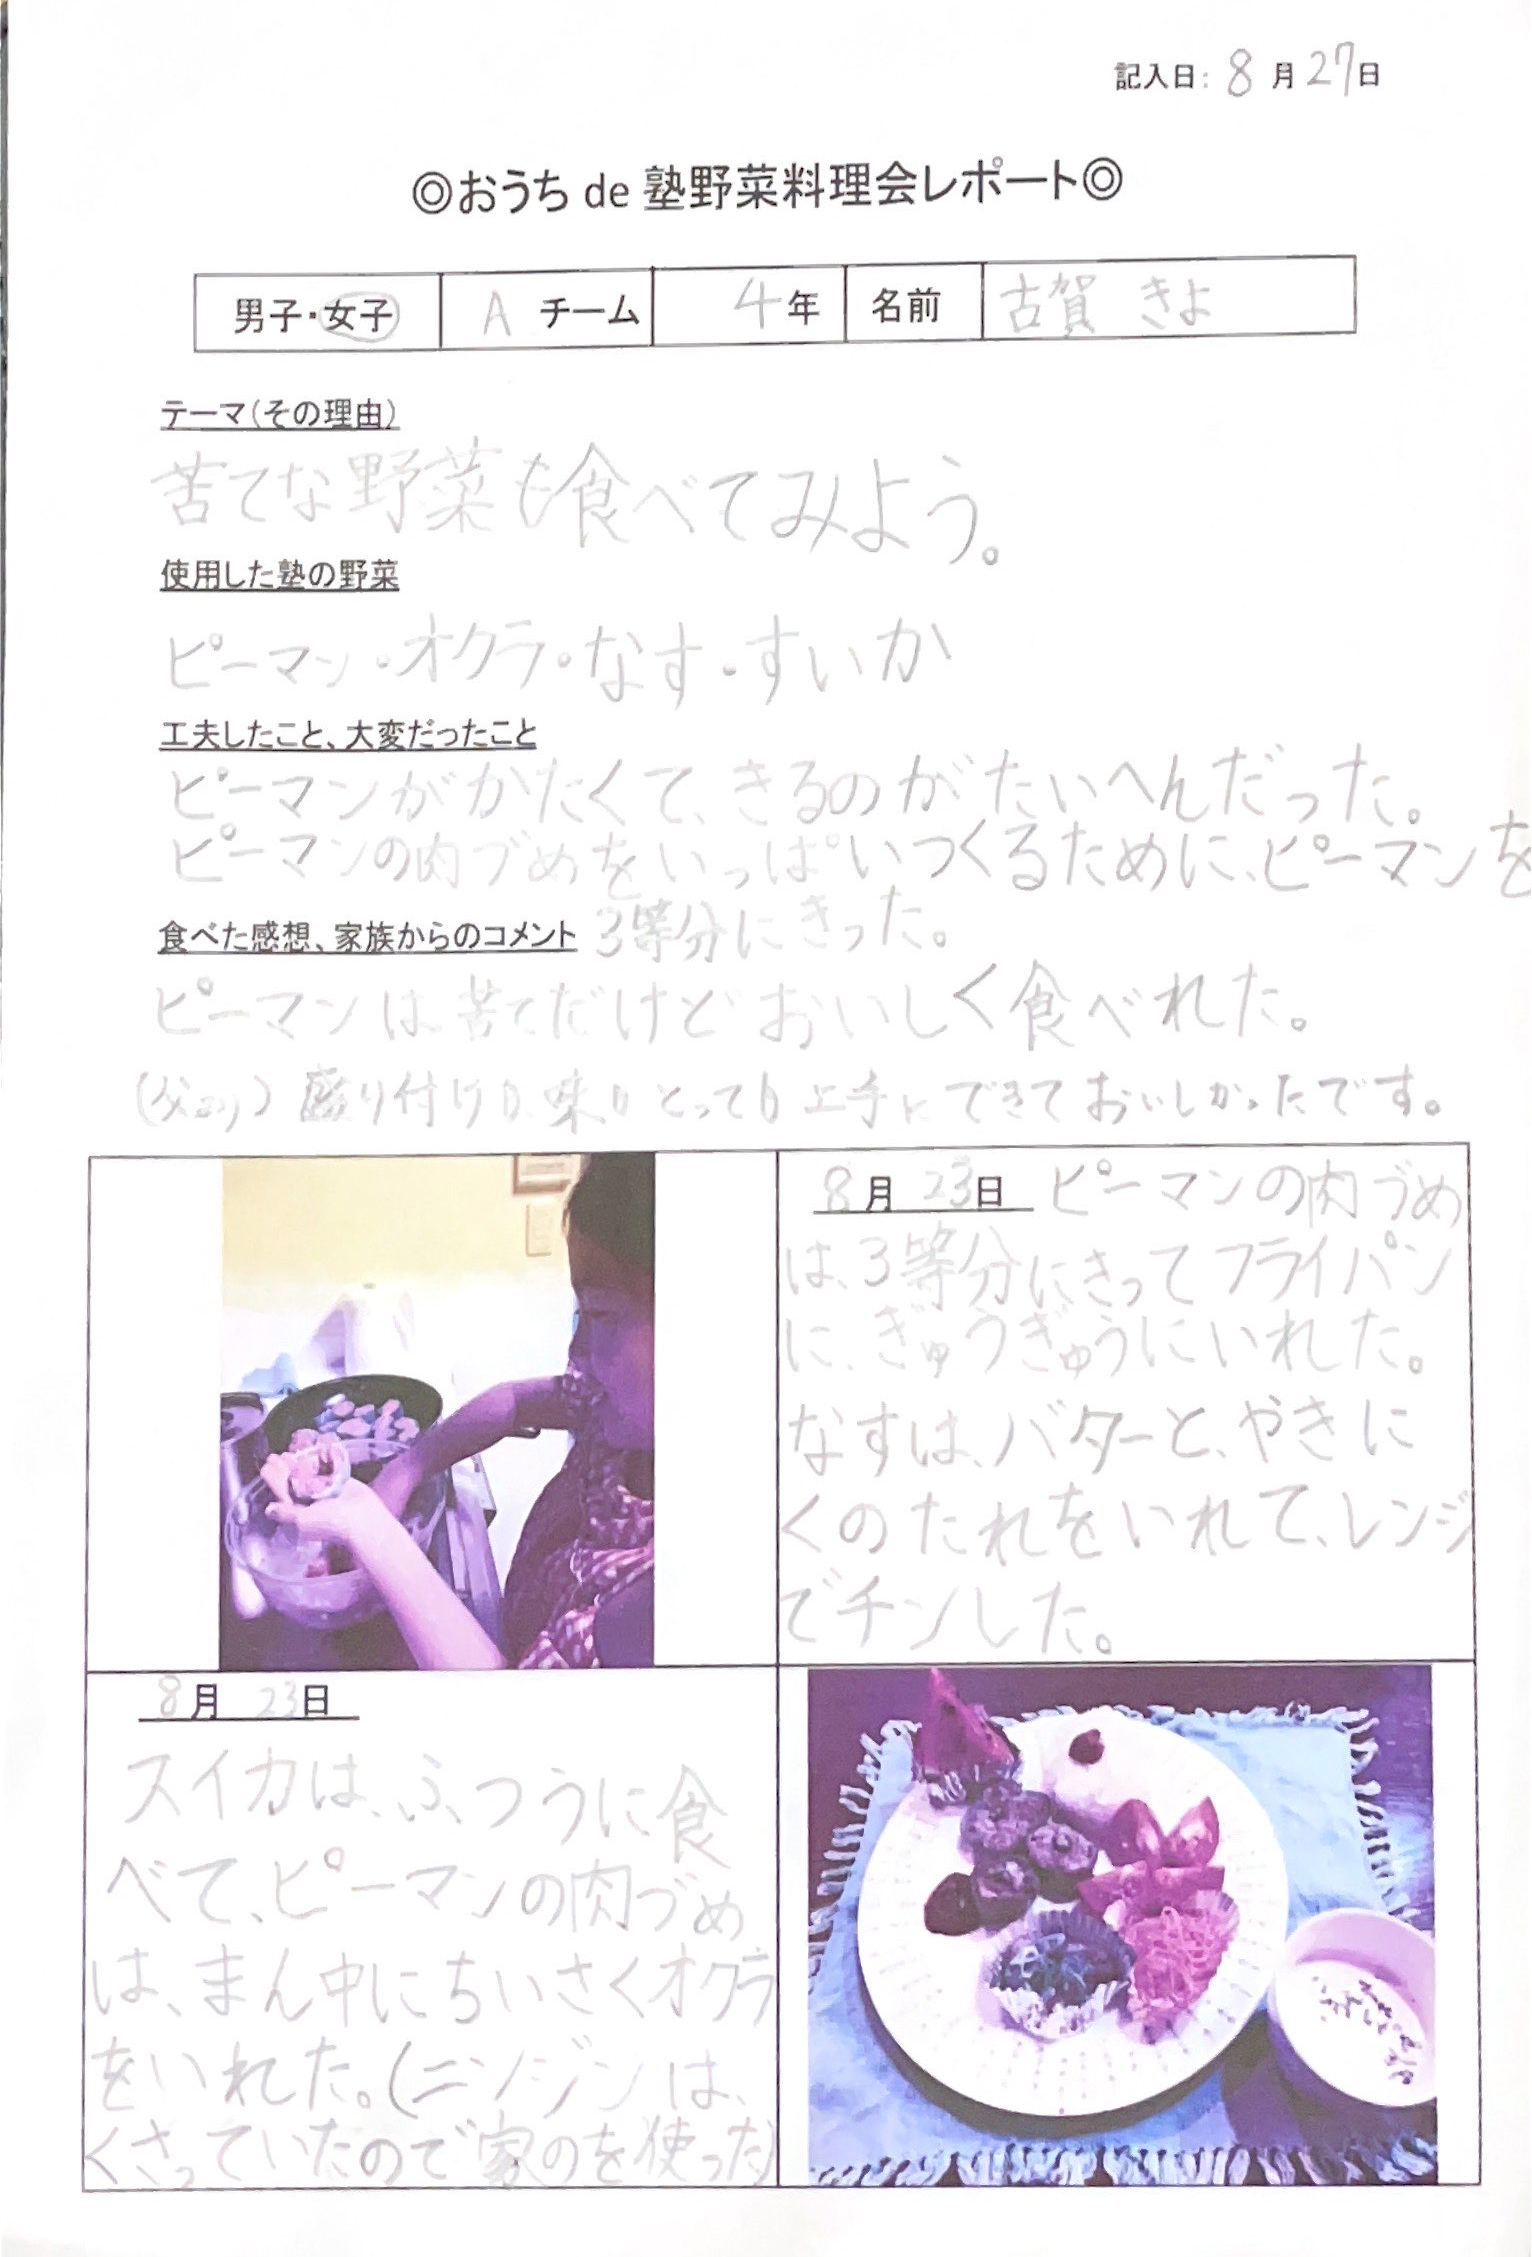 記入日: 8 月 27 日
◎おうち de 塾野菜料理会レポート◎
男子・女子 A チーム 4 年 名前 古賀 きよ
テーマ(その理由)
苦てな野菜も食べてみよう。
使用した塾の野菜
ピーマン・オクラ・なす・すいか
工夫したこと、大変だったこと
ピーマンがかたくて、きるのがたいへんだった。
ピーマンの肉づめをいっぱいつくるために、ピーマンを
3等分にきった。
食べた感想、家族からのコメント
ピーマンは、苦てだけどおいしく食べれた。
(父より) 盛り付けも、味もとっても上手にできておいしかったです。
8月 23日 ピーマンの肉づめ
は、3等分にきってフライパン
に、ぎゅうぎゅうにいれた。
なすは、バターと、やきに
くのたれをいれて、レンジ
でチンした。
8月 23日
スイカは、ふつうに食
べて、ピーマンの肉づめ
は、まん中にちいさくオクラ
をいれた。(ニンジンは、
くさっていたので家のを使った)